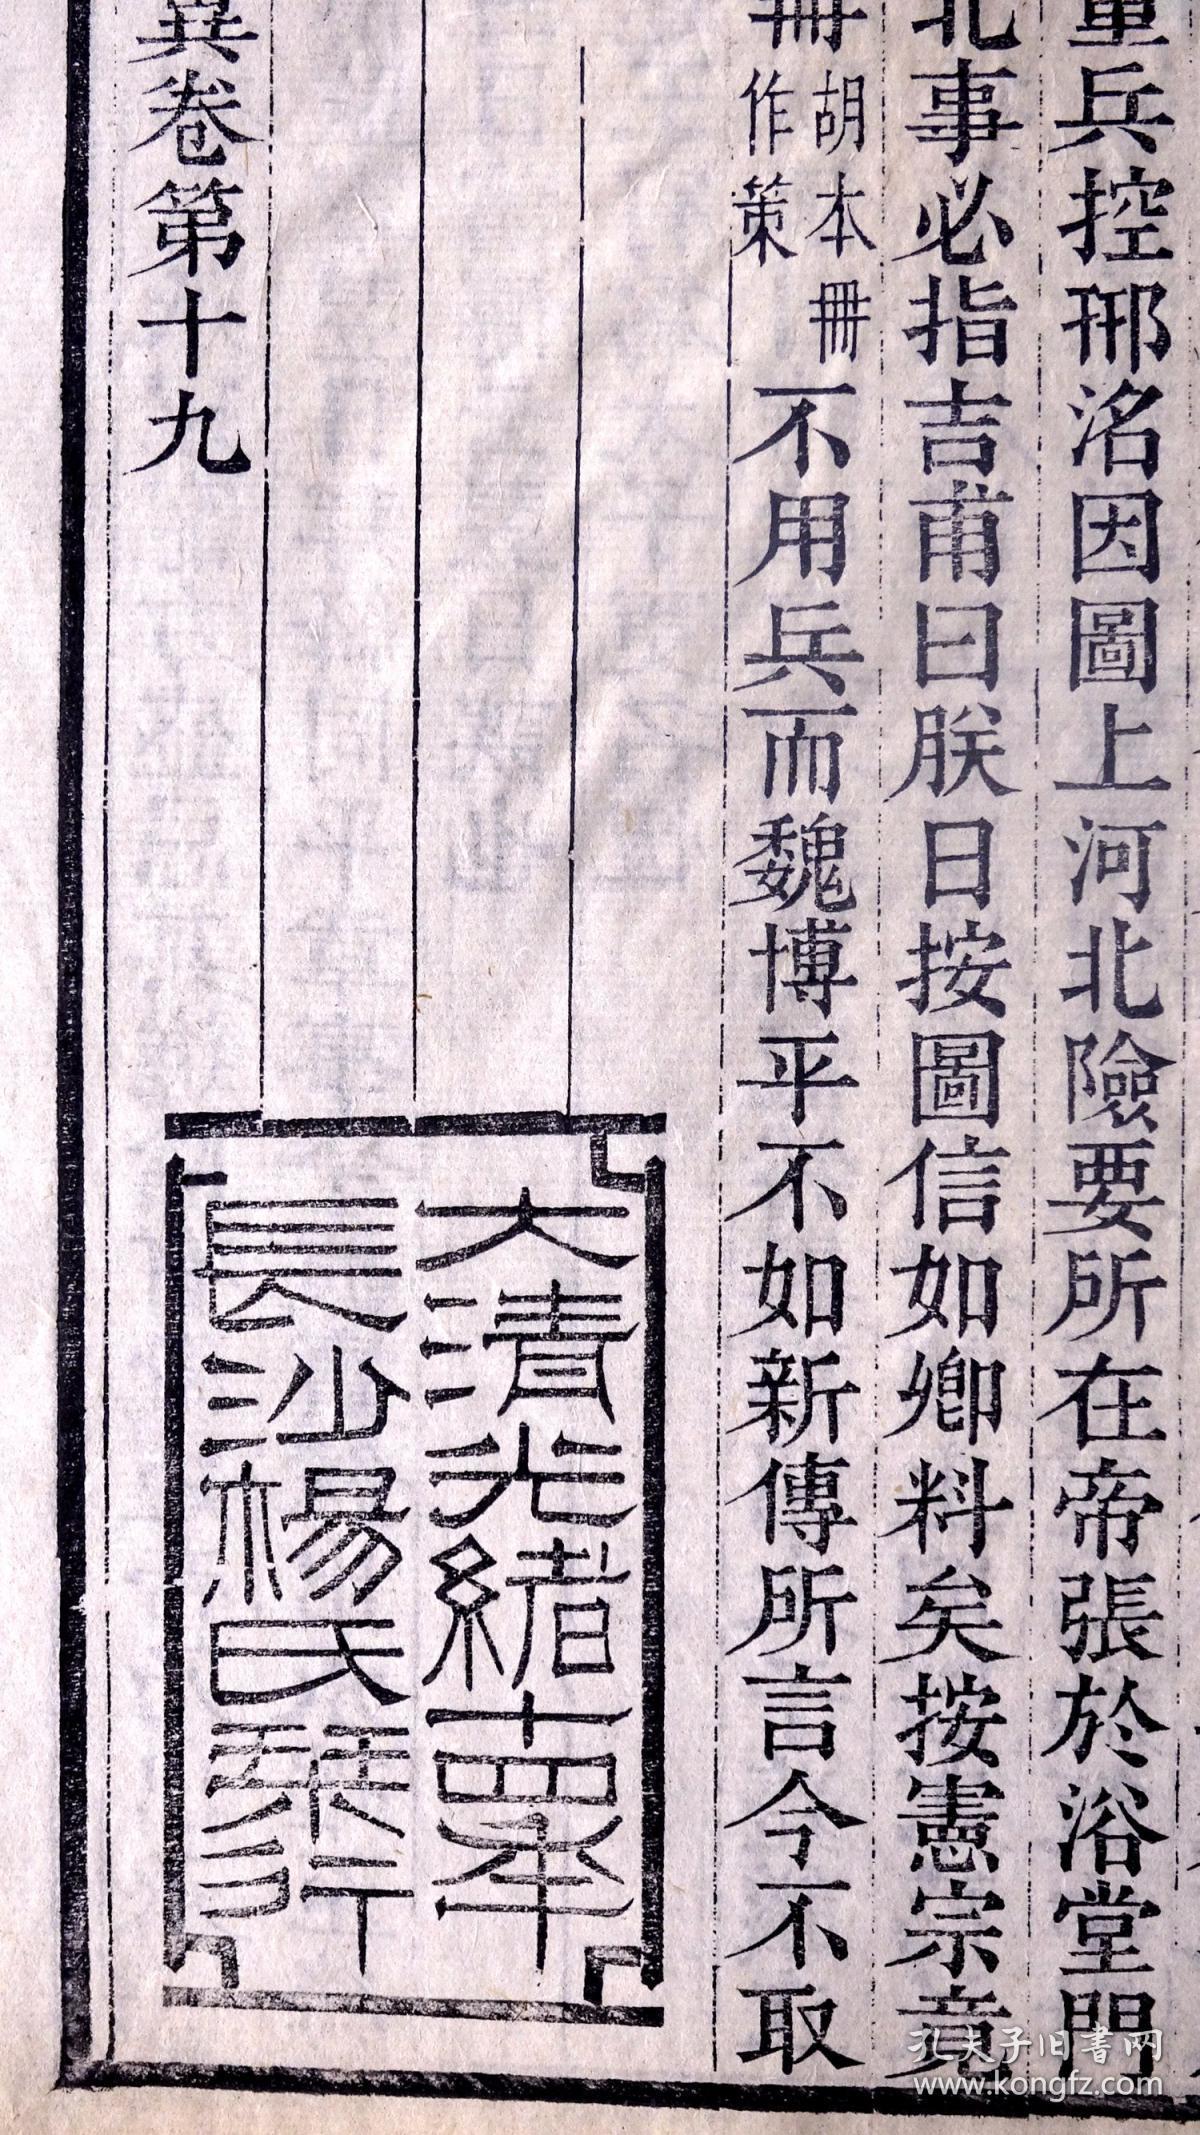 重兵控邢洺因圖上河北險要所在帝張於浴堂門
北事必指吉甫曰朕日按圖信如卿料矣按憲宗竟
冊胡本冊作策不用兵而魏博平不如新傳所言今不取
大清光緒十四年
長沙楊氏琹行
異卷第十九
孔夫子旧书网
www.kongfz.com